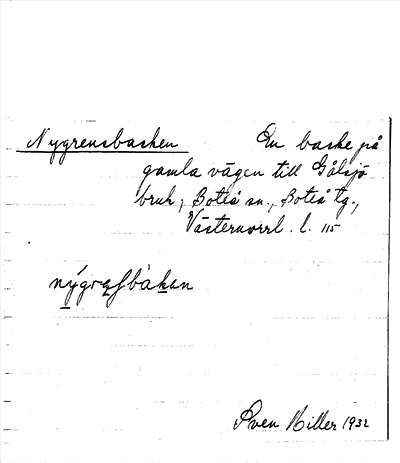 Nygrensbacken En backe på
gamla vägen till Gålsjö
bruk, Boteå sn., Boteå tg.,
Västernorrl. l. 115
Sven Hiller 1932